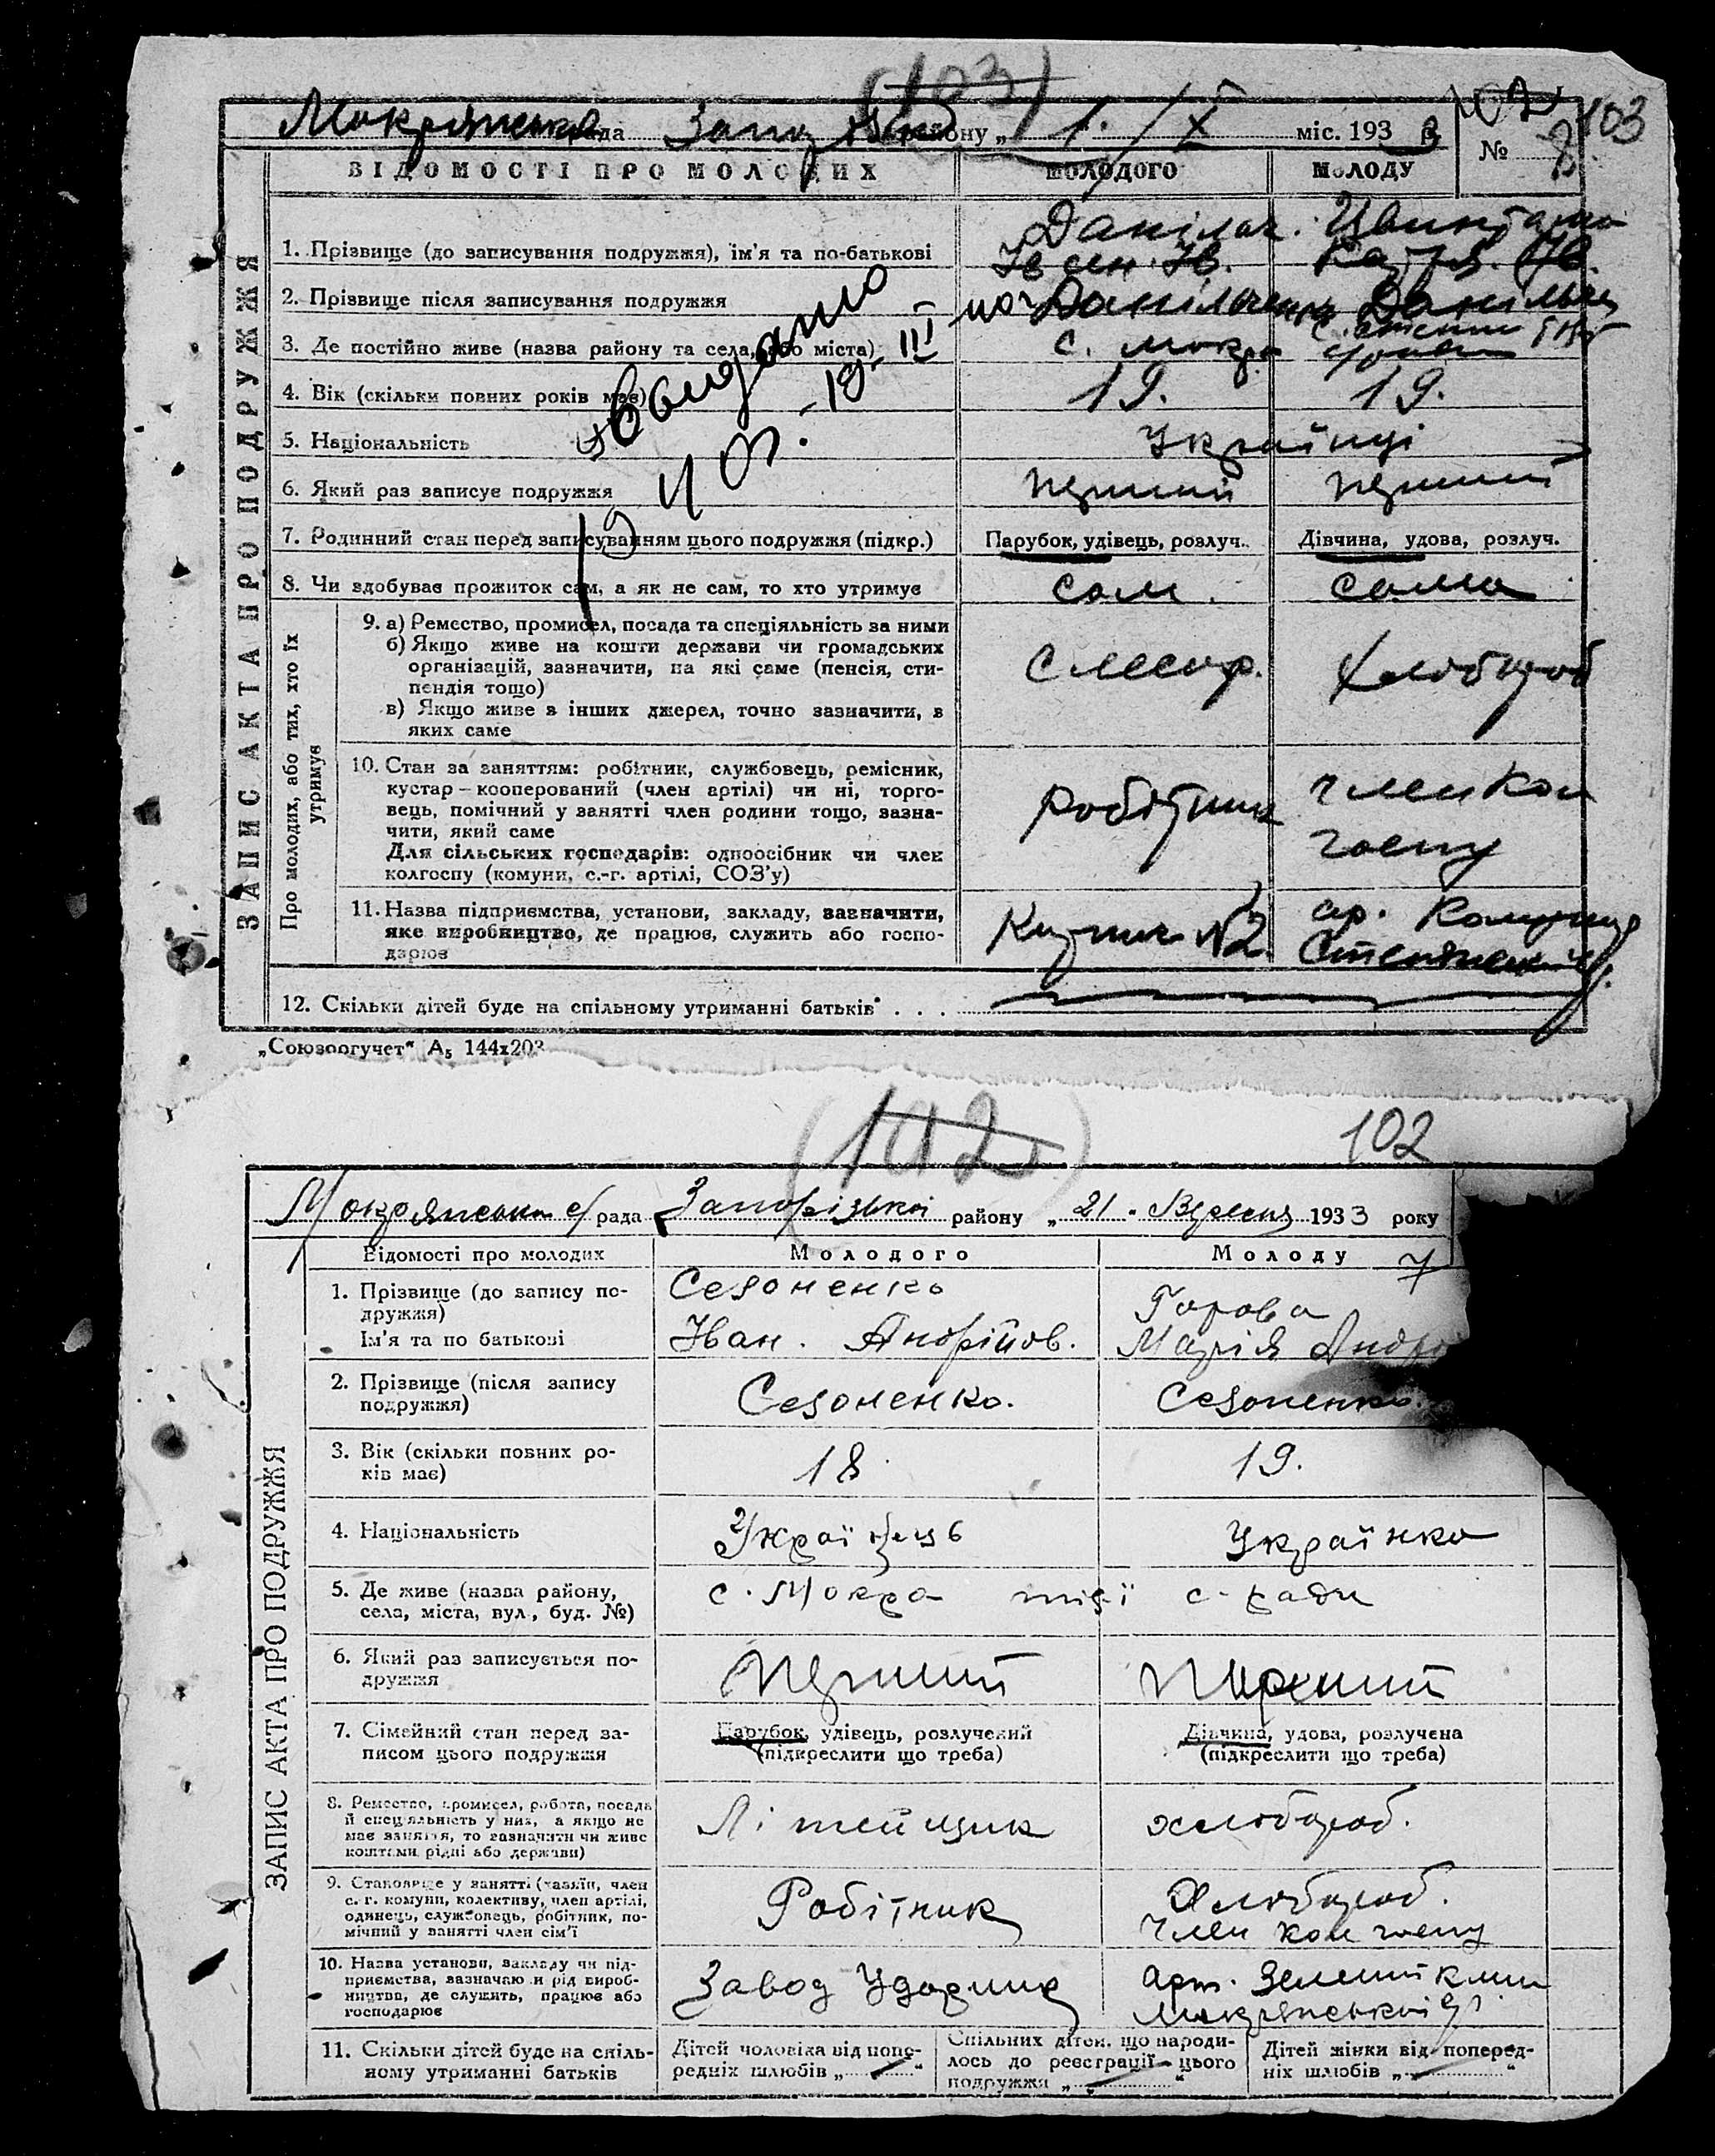 (103)
102 103
Мокрянська рада Запор району „ 1. /X міс. 1933 р. № 8
ВІДОМОСТІ ПРО МОЛОДИХ МОЛОДОГО МОЛОДУ
ЗАПИС АКТА ПРО ПОДРУЖЖЯ
1. Прізвище (до записування подружжя), ім'я та по-батькові
Ів.
2. Прізвище після записування подружжя
3. Де постійно живе (назва району та села, або міста) с. Мокра
4. Вік (скільки повних років має) 19. 19.
5. Національність Українці
6. Який раз записує подружжя перший перший
7. Родинний стан перед записуванням цього подружжя (підкр.) Парубок, удівець, розлуч. Дівчина, удова, розлуч.
8. Чи здобуває прожиток сам, а як не сам, то хто утримує сам. сама
Про молодих, або тих, хто їх утримує
9. а) Ремество, промисел, посада та спеціяльність за ними
б) Якщо живе на кошти держави чи громадських
організацій, зазначити, на які саме (пенсія, сти-
пендія тощо)
в) Якщо живе з інших джерел, точно зазначити, з
яких саме
слесар. хлібороб
10. Стан за заняттям: робітник, службовець, ремісник,
кустар – кооперований (член артілі) чи ні, торго-
вець, помічний у занятті член родини тощо, зазна-
чити, який саме
Для сільських господарів: одноосібник чи член
колгоспу (комуни, с.-г. артілі, СОЗ'у)
робітник член кол
госпу
11. Назва підприємства, установи, закладу, зазначити,
яке виробництво, де працює, служить або госпо-
дарює
№2. ар.
12. Скільки дітей буде на спільному утриманні батьків . . .
„Союзоргучет“ А₅ 144х203
(102) 102
Мокрянська с/рада Запорізької району „21. Вересня 1933 року
Відомості про молодих Молодого Молоду 7
ЗАПИС АКТА ПРО ПОДРУЖЖЯ
1. Прізвище (до запису по-
дружжя)
Ім'я та по батькові
Сезоненко
Іван. Андрійов.
Горова
Марія Андр
2. Прізвище (після запису
подружжя)
Сезоненко. Сезоненко.
3. Вік (скільки повних ро-
ків має)
18 19.
4. Національність Українець Українка
5. Де живе (назва району,
села, міста, вул., буд. №)
с. Мокра тієї с-ради
6. Який раз записується по-
дружжя
Перший Перший
7. Сімейний стан перед за-
писом цього подружжя
Парубок, удівець, розлучений
(підкреслити що треба)
Дівчина, удова, розлучена
(підкреслити що треба)
8. Ремество, промисел, робота, посада
й спеціяльність у них, а якщо не
має заняття, то зазначити чи живе
коштами рідні або держави)
Літейщик хлібороб.
9. Становище у занятті (хазяїн, член
с.-г. комуни, колективу, член артілі,
одинець, службовець, робітник, по-
мічний у занятті член сім'ї
Робітник
Хлібороб.
член колгоспу
10. Назва установи, закладу чи під-
приємства, зазначаючи рід вироб-
ництва, де служить, працює або
господарює
Завод Ударник
Арт. Зелений клин
Мокрянської с/р
11. Скільки дітей буде на спіль-
ному утриманні батьків
Дітей чоловіка від попе-
редніх шлюбів „ “
Спільних дітей, що народи-
лось до реєстрації цього
подружжя „ “
Дітей жінки від поперед-
ніх шлюбів „ “